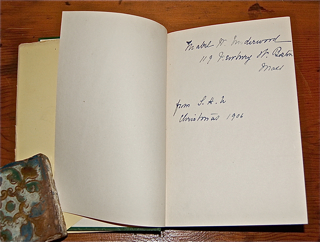 Mabel W. Underwood
119 Newbury St. Boston
Mass
from L. H. U
Christmas 1906